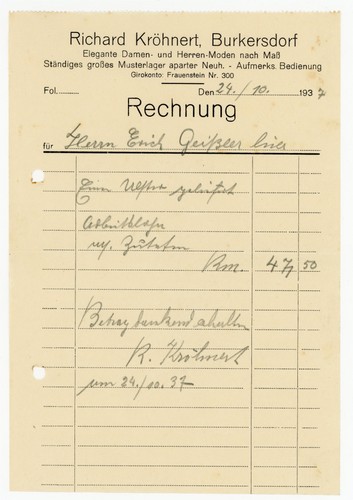 Richard Kröhnert, Burkersdorf
Elegante Damen- und Herren-Moden nach Maß
Ständiges großes Musterlager aparter Neuh. - Aufmerks. Bedienung
Girokonto: Frauenstein Nr. 300
Fol. Den 24./10. 1937
Rechnung
für Herrn Erich Geißler hier
Einen Ulster geliefert
Arbeitslohn
u. Zutaten
Rm. 47 50
Betrag dankend erhalten
R. Kröhnert
am 24./10. 37